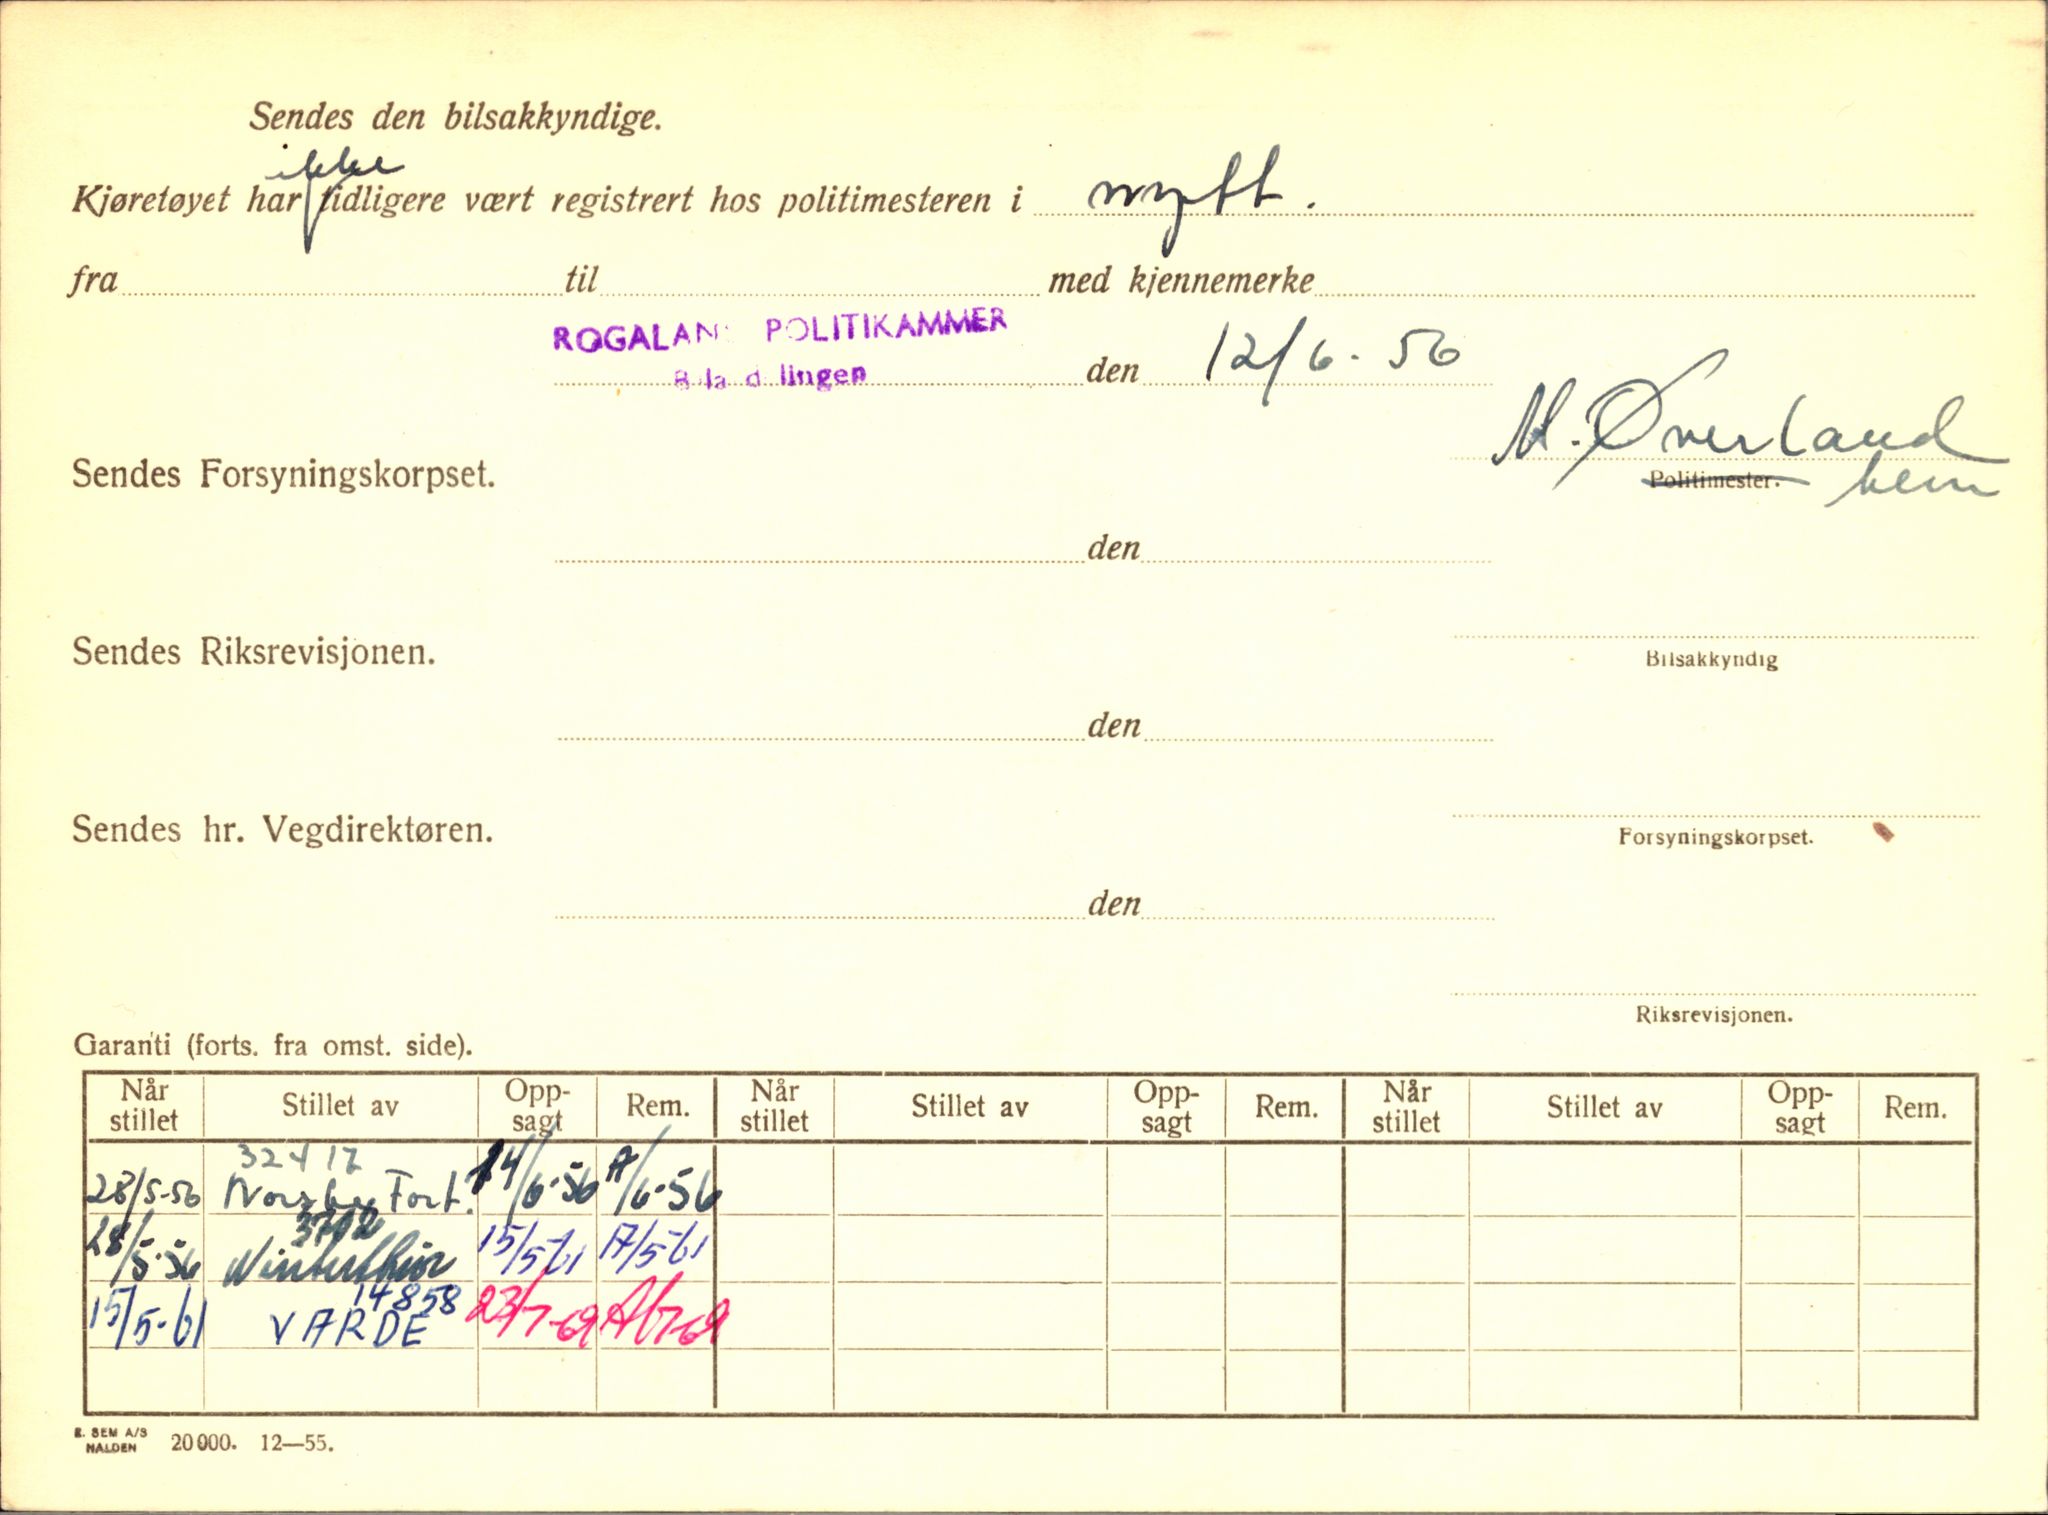 Sendes den bilsakkyndige.
ikke
Kjøretøyet har tidligere vært registrert hos politimesteren i nytt.
fra til med kjennemerke
ROGALAN POLITIKAMMER
lingen den 12/6-56
M. Øverland
Sendes Forsyningskorpset. Politimester.
den
Sendes Riksrevisjonen. Bilsakkyndig
den
Sendes hr. Vegdirektøren. Forsyningskorpset.
den
Riksrevisjonen.
Garanti (forts. fra omst. side).
Når stillet Stillet av Opp-sagt Rem. Når stillet Stillet av Opp-sagt Rem. Når stillet Stillet av Opp-sagt Rem.
32417
28/5-56 Norske Fort. 14/6-56 A/6-56
3792
28/5-56 Winterthur 15/5-61 A/5-61
14858
15/5-61 VARDE 23/7-69 A/7-69
E. SEM A/S
HALDEN 20000. 12—55.